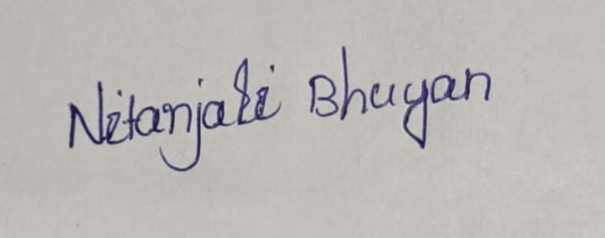 Nitanjali Bhuyan